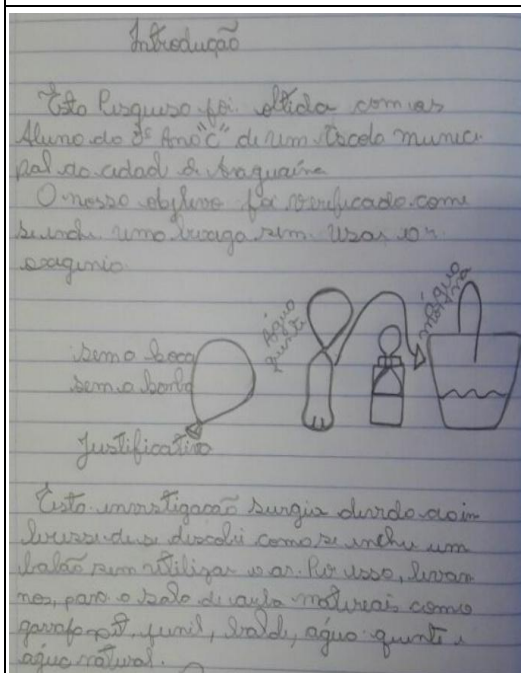 Introdução
Esta Pesquisa foi obtida com as
Aluno do 3º Ano "C" de um Escola munici-
pal da cidad de Araguaína
O nosso objtivo foi verificado com
se inche uma bexiga sem usar o
oxagenio.
Água
quente
Água
sem a boca
sem a bomba
Justificativa
Esta investigação surgiu devido ao in
teresse de se descobri como se inche um
balão sem utilizar o ar. Por isso, levan
nos, para a sala de aula materiais como
garrafa pet, funil, balde, água quente e
água natural.